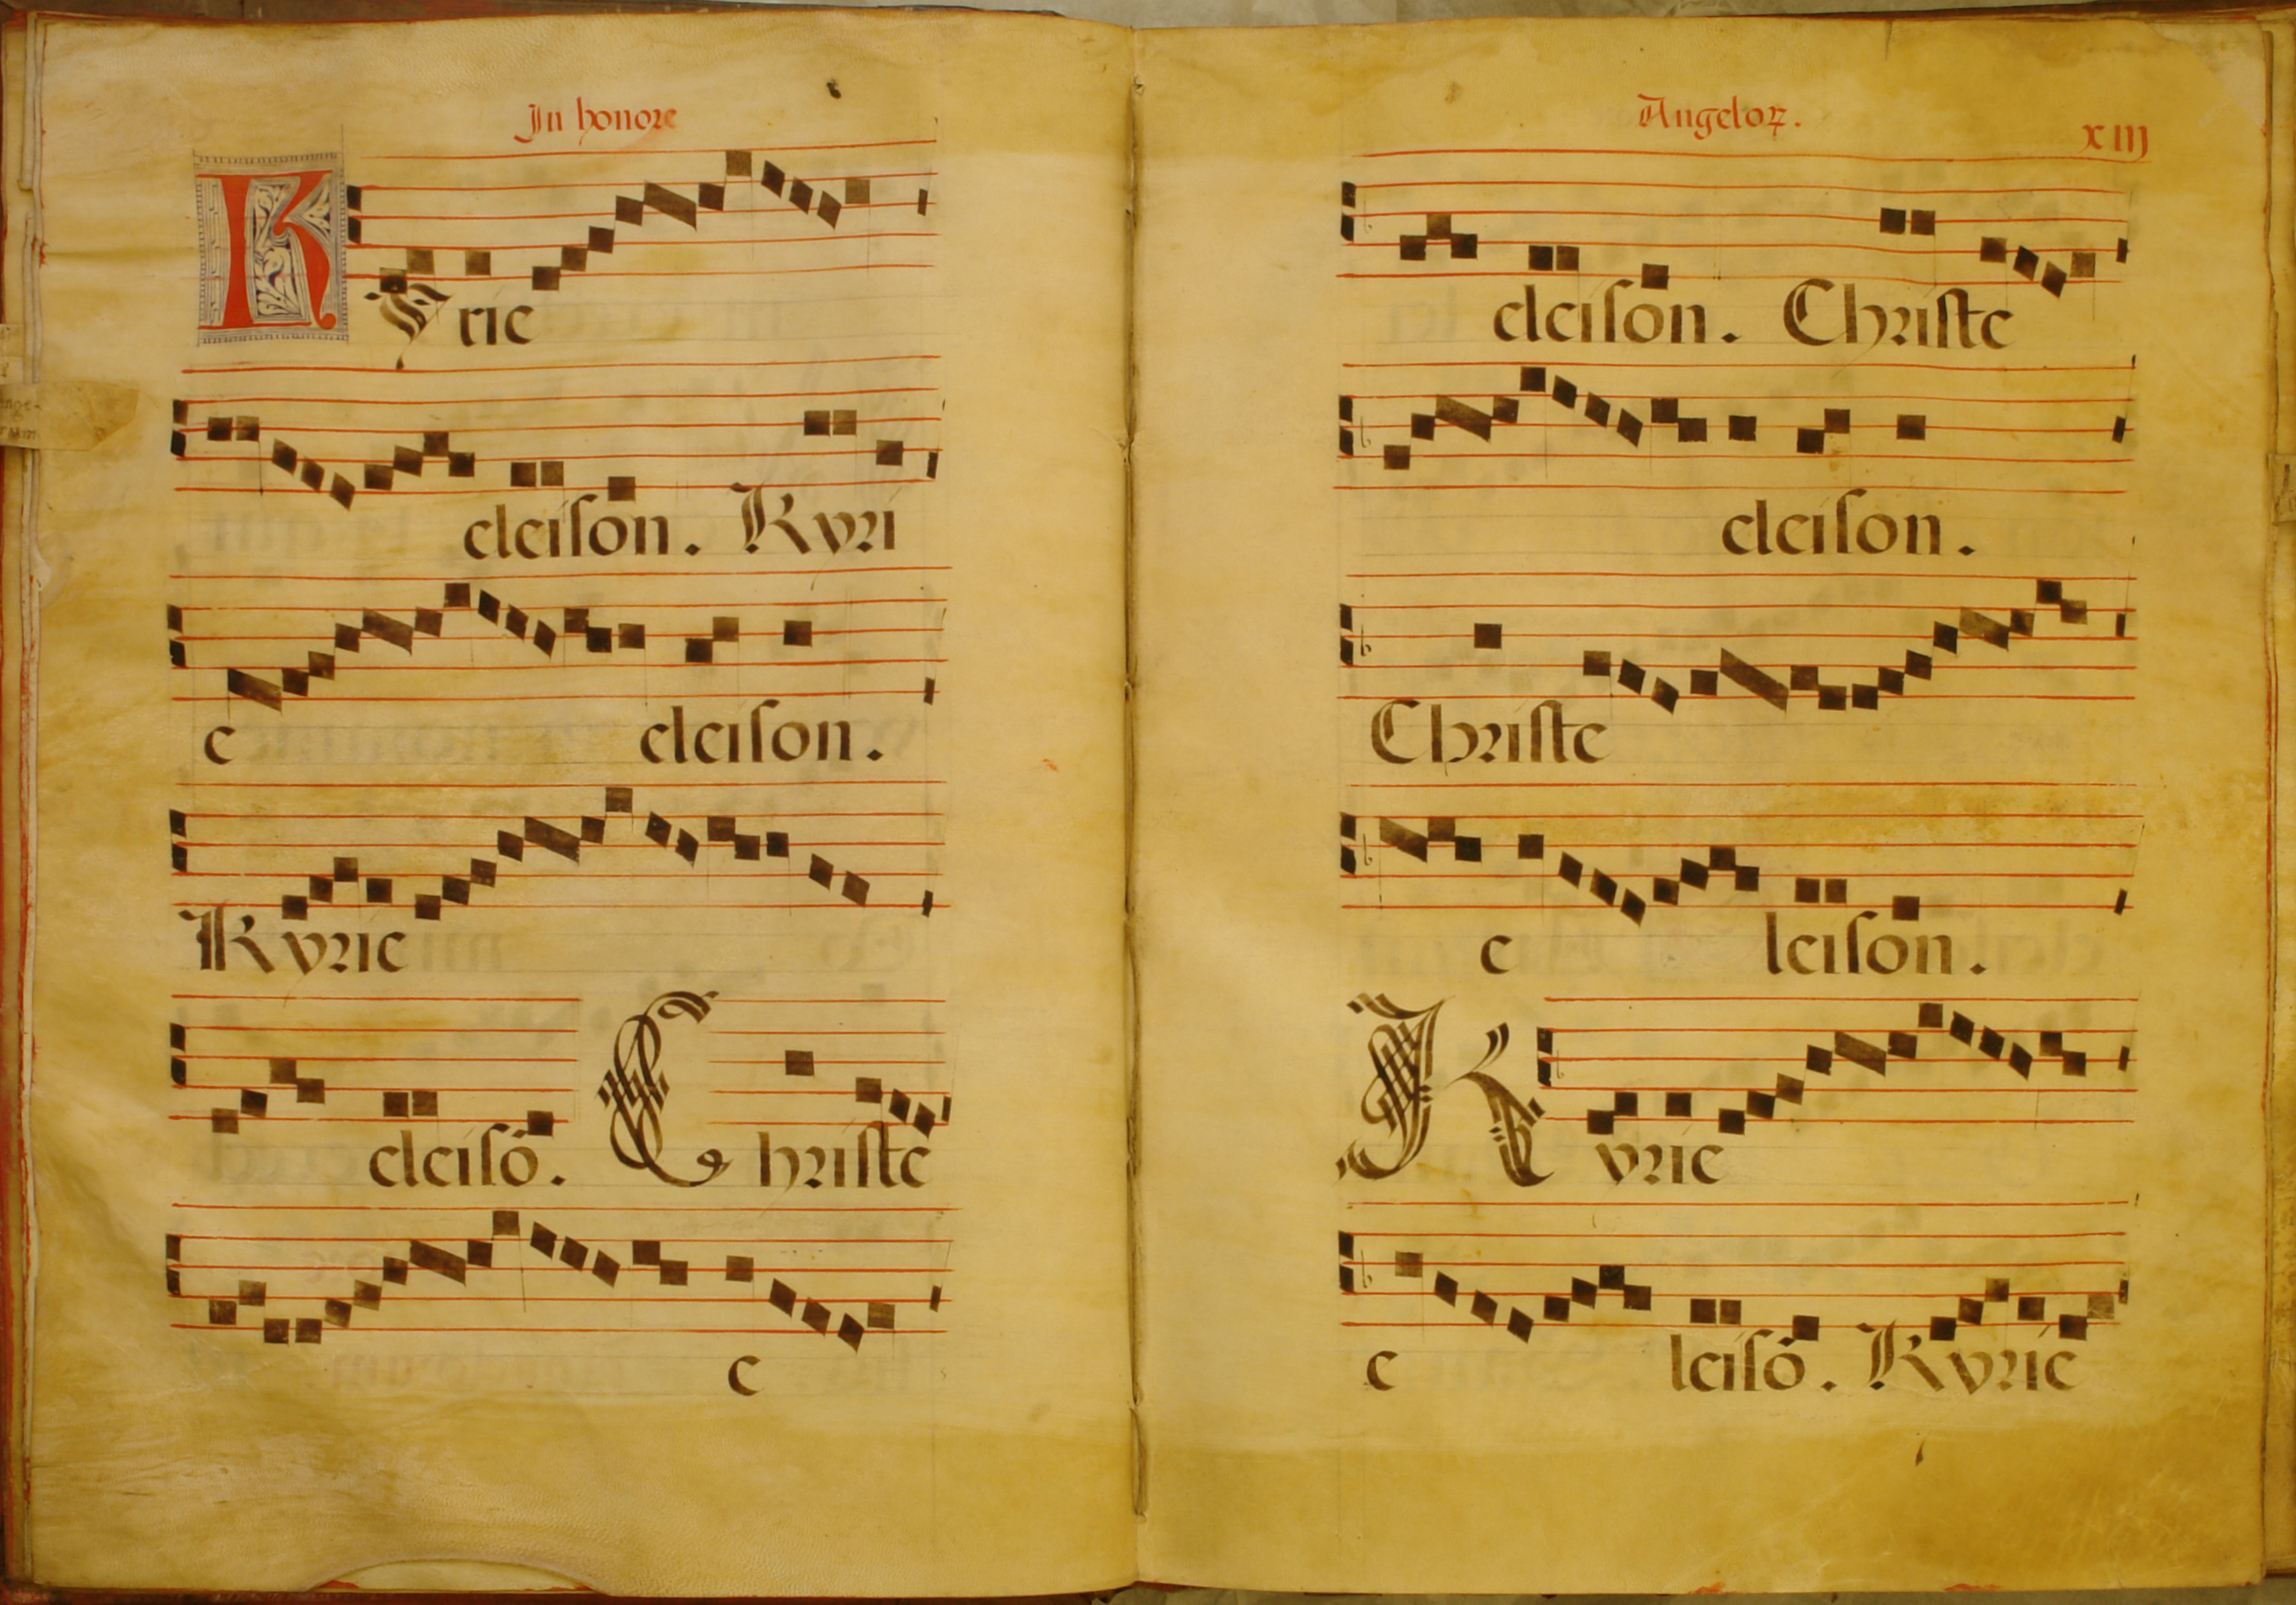 In honore
Kyrie
eleison. Kyri
e eleison.
Kyrie
eleisō. Christe
e
Angeloꝝ.
xiij
eleison. Christe
eleison.
Christe
e leison.
Kyrie
e leisō. Kyrie